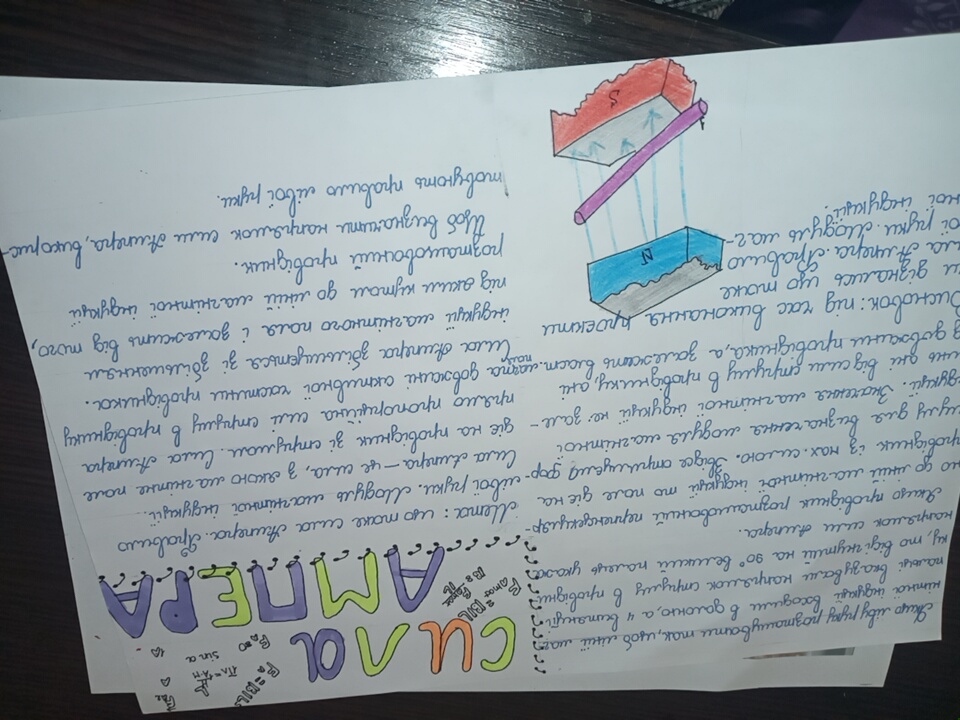 СИЛА
АМПЕРА
Мета: що таке сила Ампера. Правило
лівої руки. Модуль магнітної індукції.
Сила Ампера — це сила, з якою магнітне поле
діє на провідник зі струмом. Сила Ампера
прямо пропорційна силі струму в провіднику
довжині активної частини провідника.
Сила Ампера збільшується зі збільшенням
індукції магнітного поля і залежить від того,
під яким кутом до ліній магнітної індукції
розташований провідник.
Щоб визначити напрямок сили Ампера, викорис-
товують правило лівої руки.
Якщо ліву руку розташувати так, щоб лінії маг-
нітної індукції входили в долоню, а 4 витягнуті
пальці вказували напрямок струму в провідни-
ку, то відігнутий на 90° великий палець укаже
напрямок сили Ампера.
Якщо провідник розташований перпендикуляр-
но до ліній магнітної індукції то поле діє на
провідник із мах. силою. Звідси отримуємо фор-
мулу для визначення модуля магнітної
індукції. Значення магнітної індукції не зале-
жить ані від сили струму в провіднику, ані
від довжини провідника, а залежить власт.
Висновок: під час виконання проекту
ми дізнались що таке
сила Ампера. Правило
лівої руки. Модуль маг-
нітної індукції.
N
S